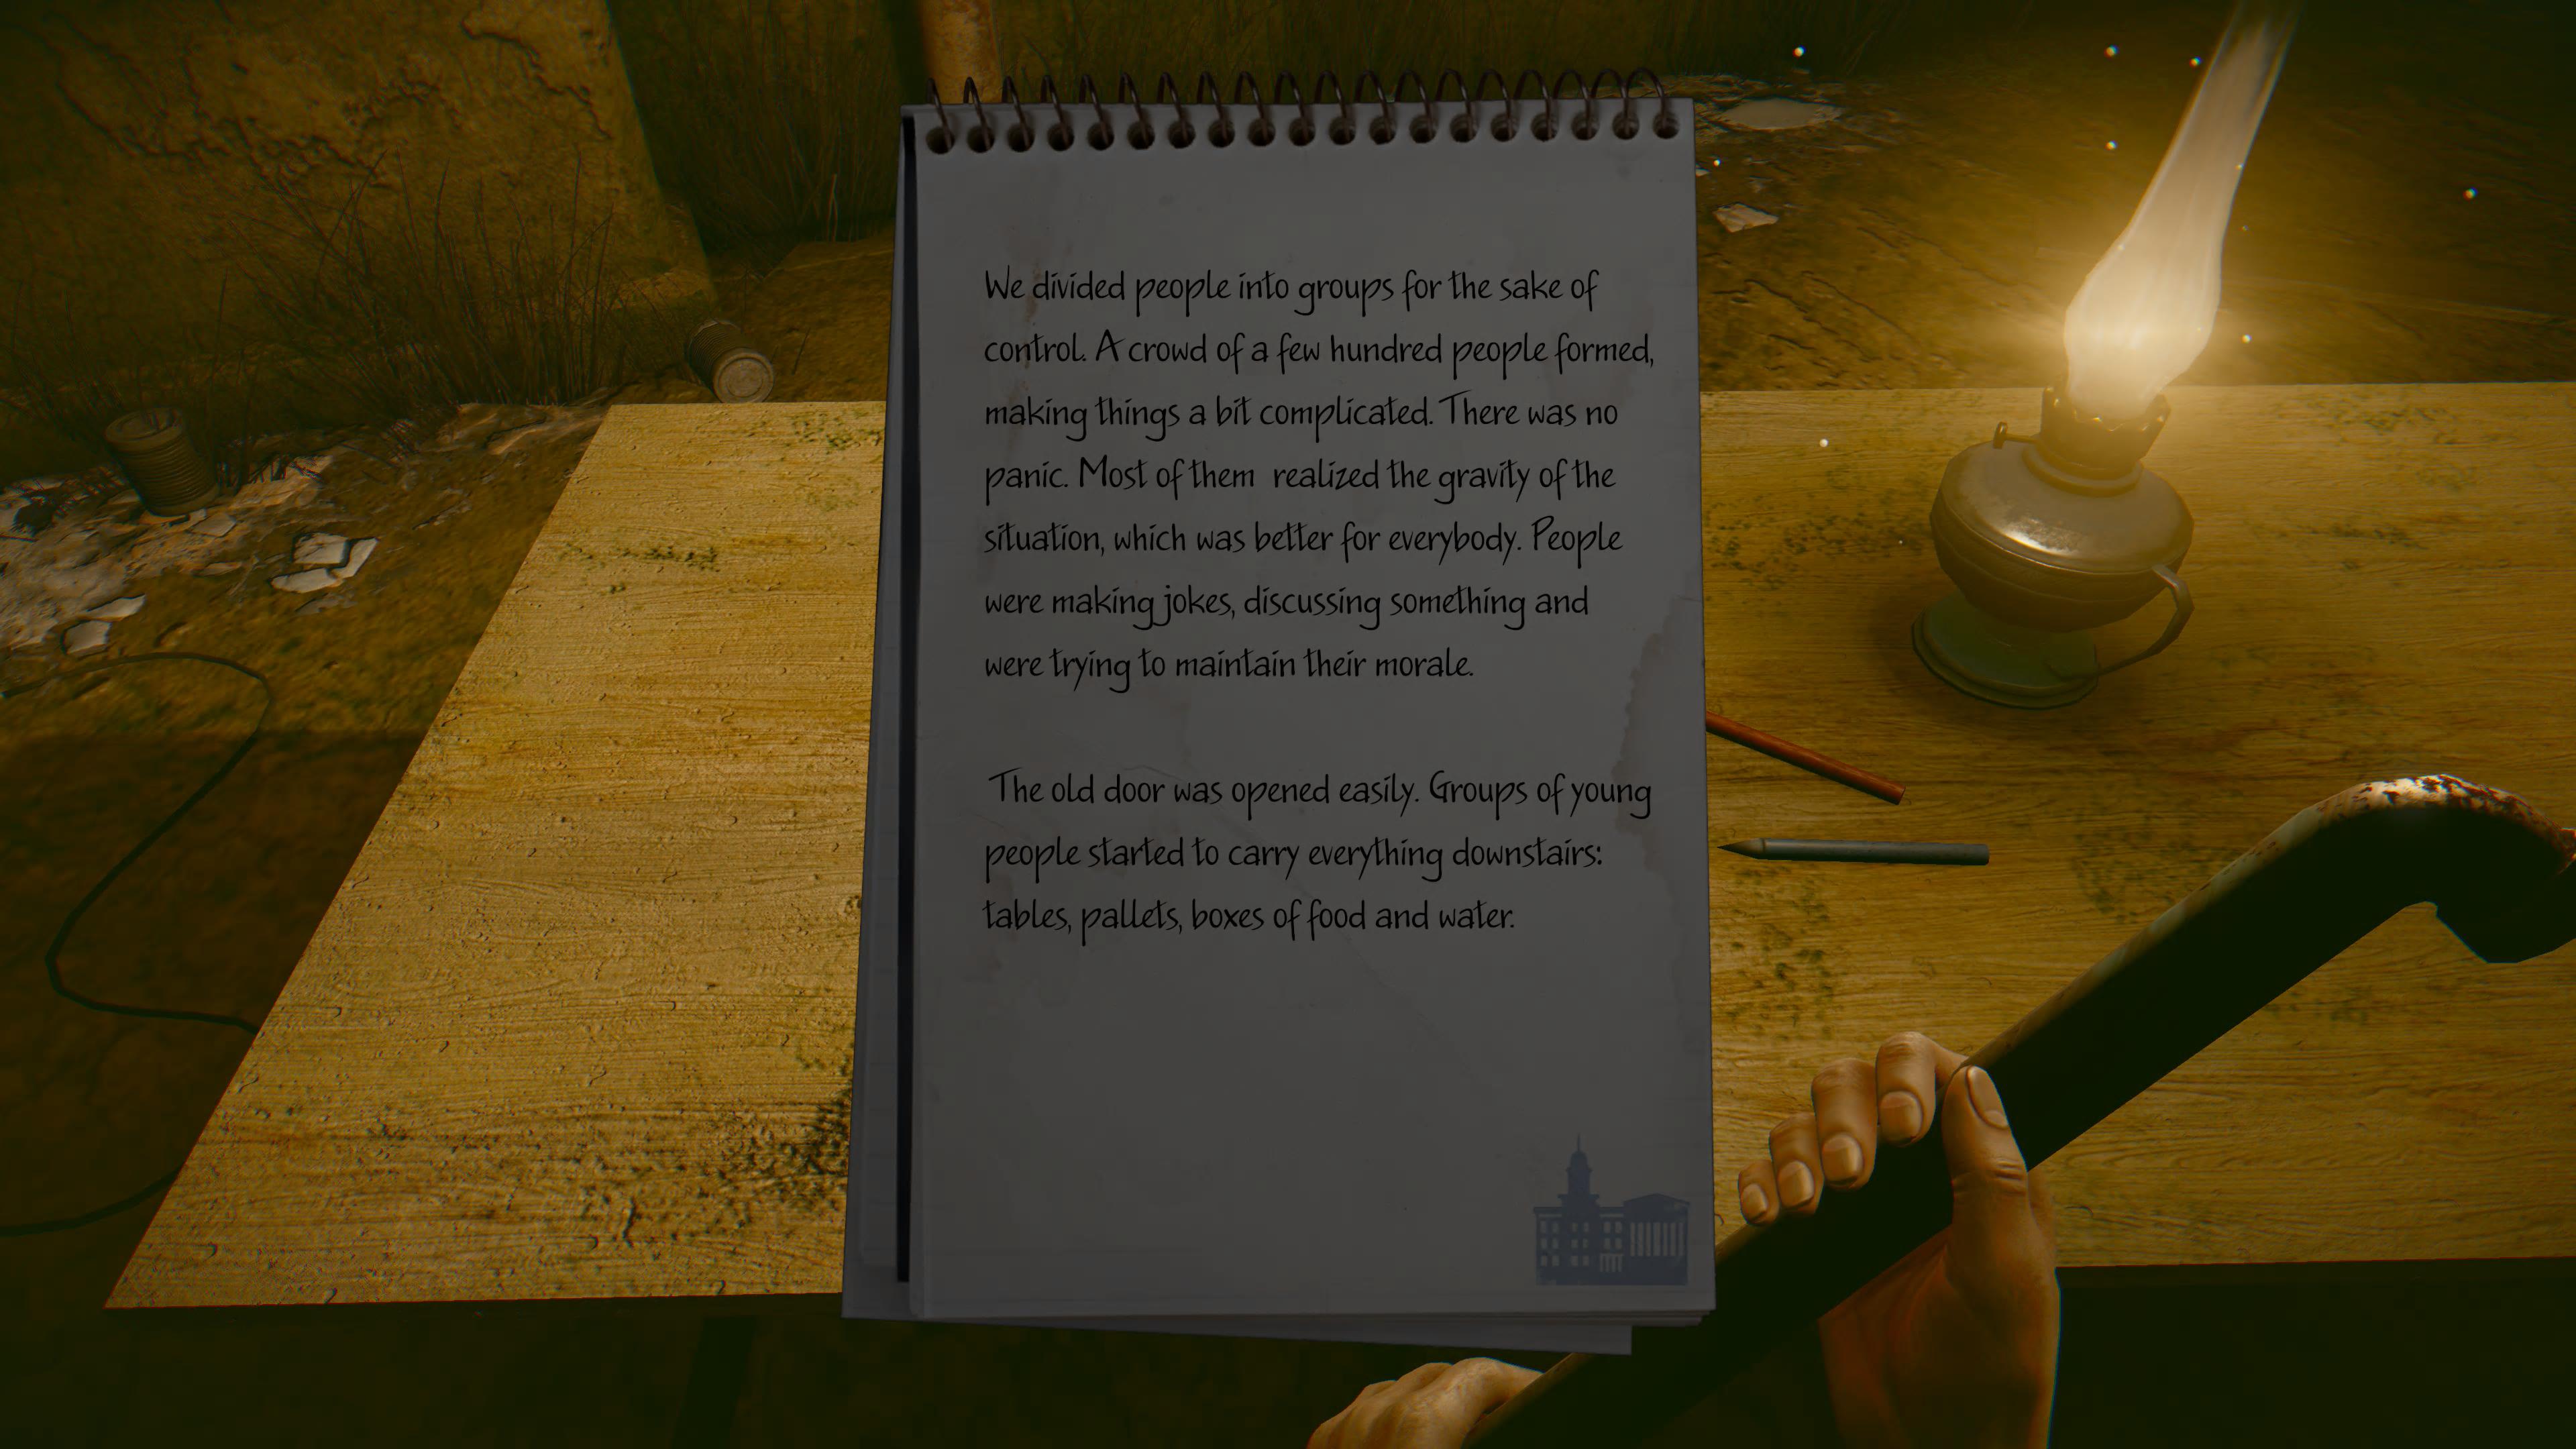 We divided people into groups for the sake of
control. A crowd of a few hundred people formed,
making things a bit complicated. There was no
panic. Most of them realized the gravity of the
situation, which was better for everybody. People
were making jokes, discussing something and
were trying to maintain their morale.
The old door was opened easily. Groups of young
people started to carry everything downstairs:
tables, pallets, boxes of food and water.